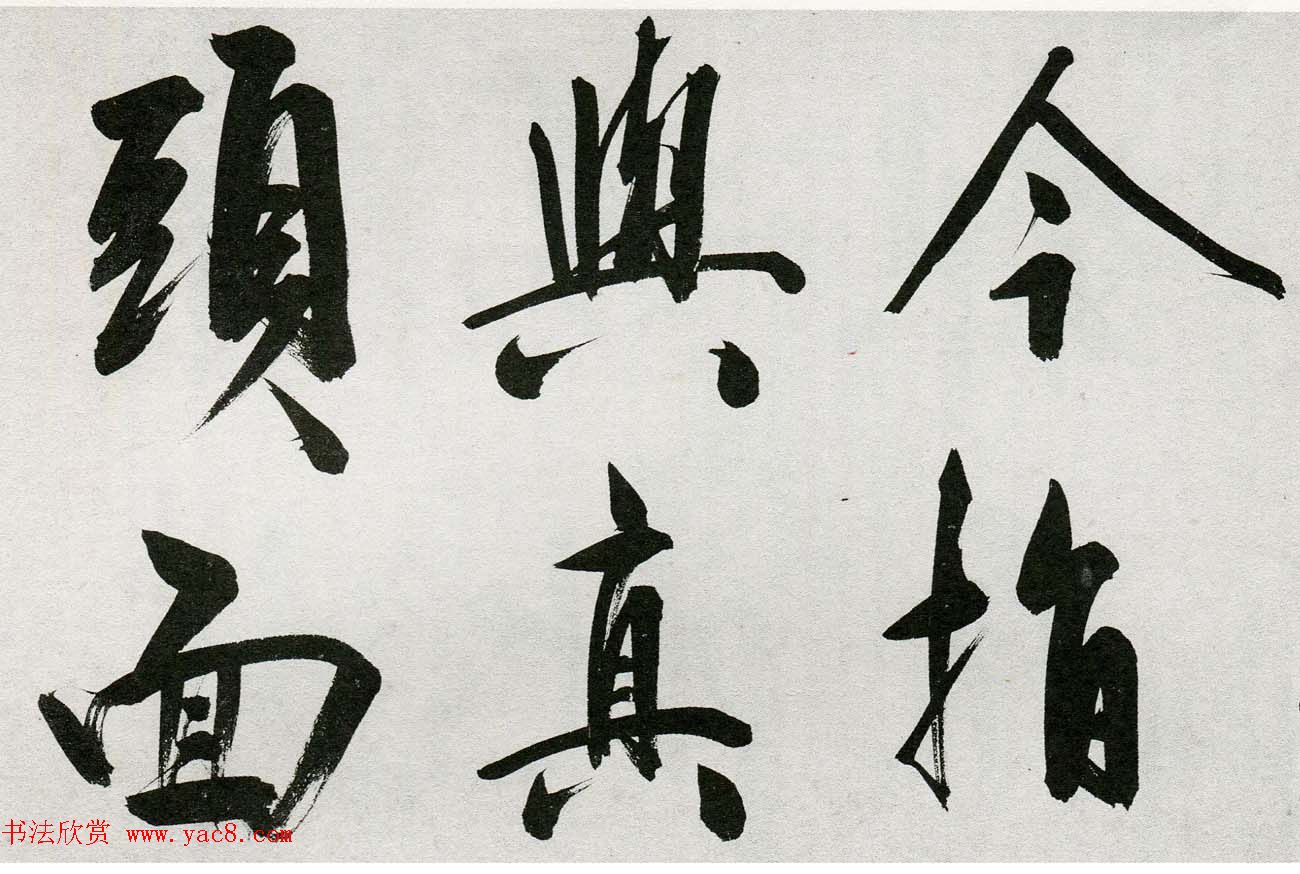 今指
與真
頭面
书法欣赏 www.yac8.com